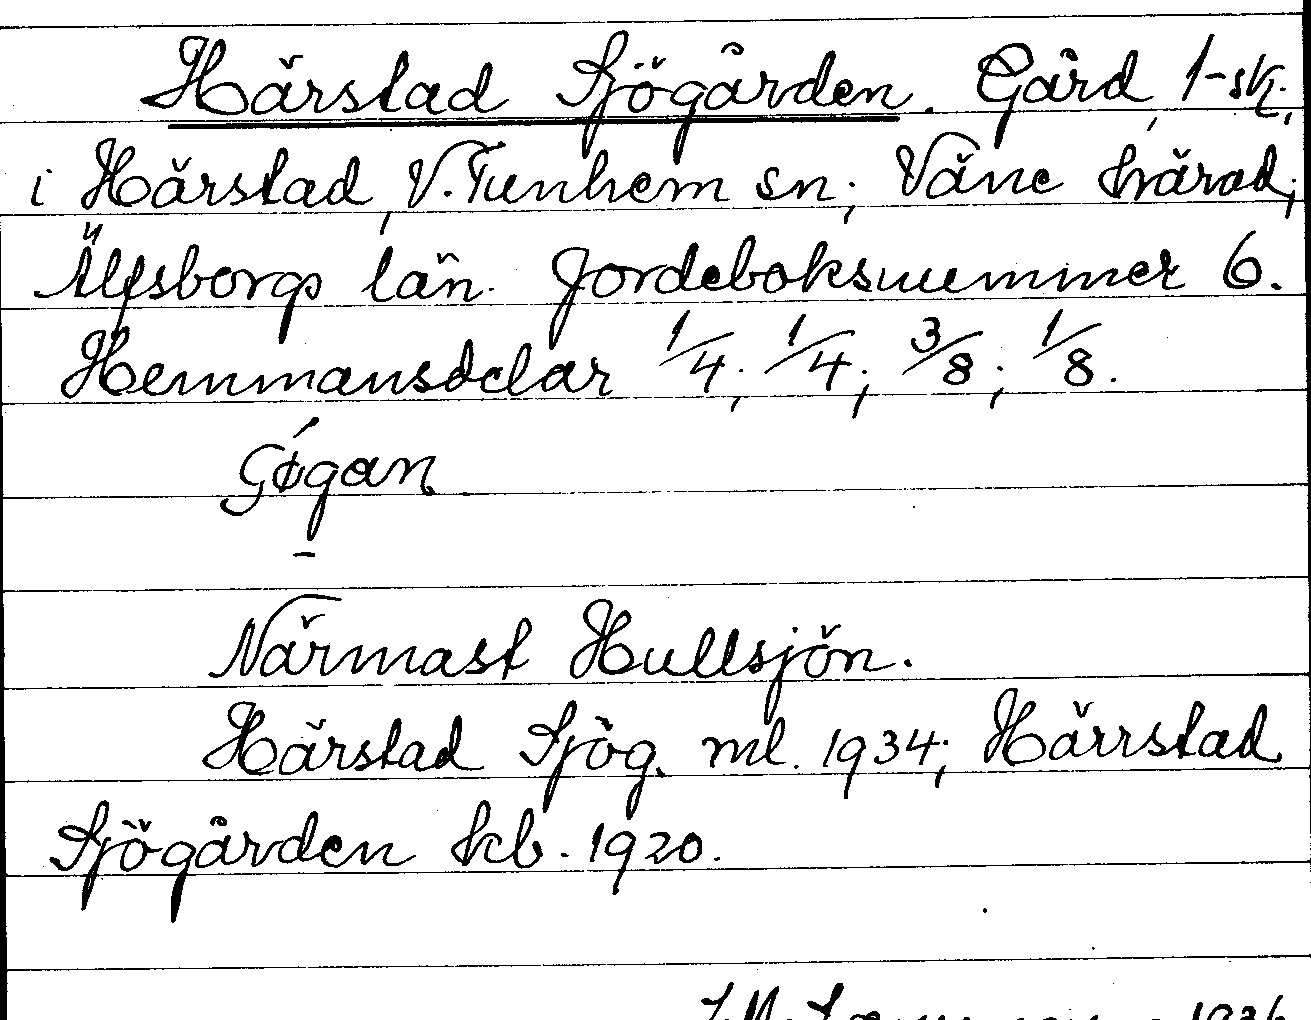 Härstad Sjögården. Gård, 1-sk.
i Härstad, V. Tunhem sn; Väne härad;
Älfsborgs län. Jordeboksnummer 6.
Hemmansdelar 1/4; 1/4; 3/8; 1/8.
Närmast Hullsjön.
Härstad Sjög. ml. 1934; Härrstad
Sjögården kb. 1920.
1936